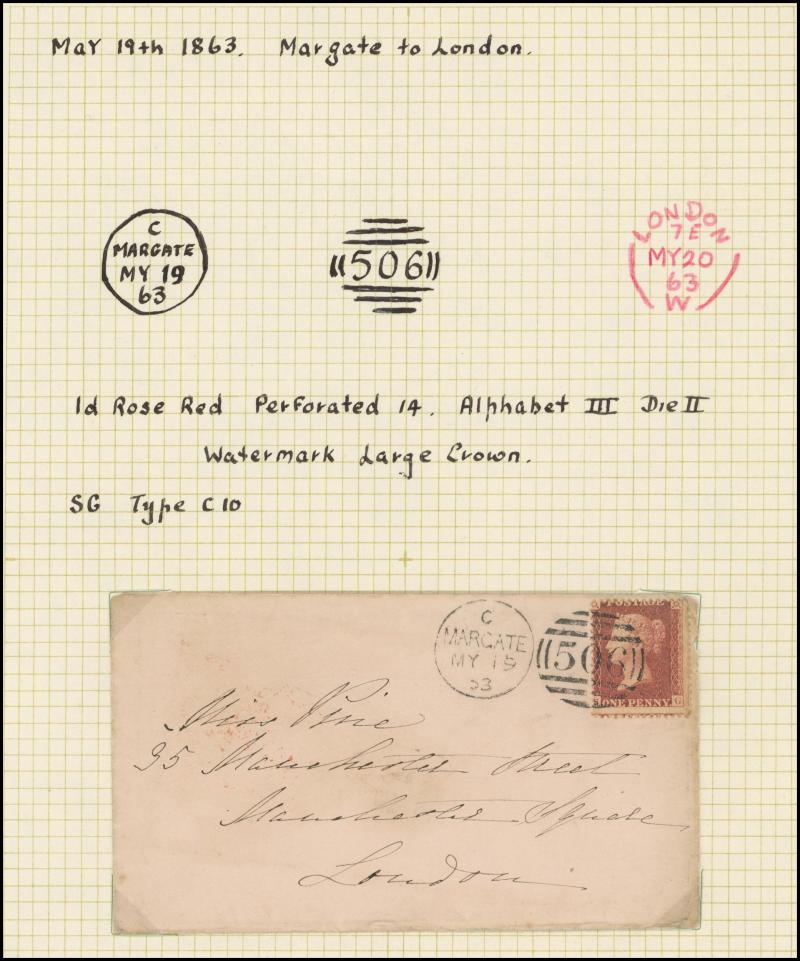 May 19th 1863. Margate to London.
C
MARGATE
MY 19
63
506
LONDON
7 E
MY 20
63
W
1d Rose Red Perforated 14. Alphabet III Die II
Watermark Large Crown.
SG Type C 10
C
MARGATE
MY 19
63
506
POSTAGE
ONE PENNY
Miss Pirie
35 Manchester Street
Manchester Square
London